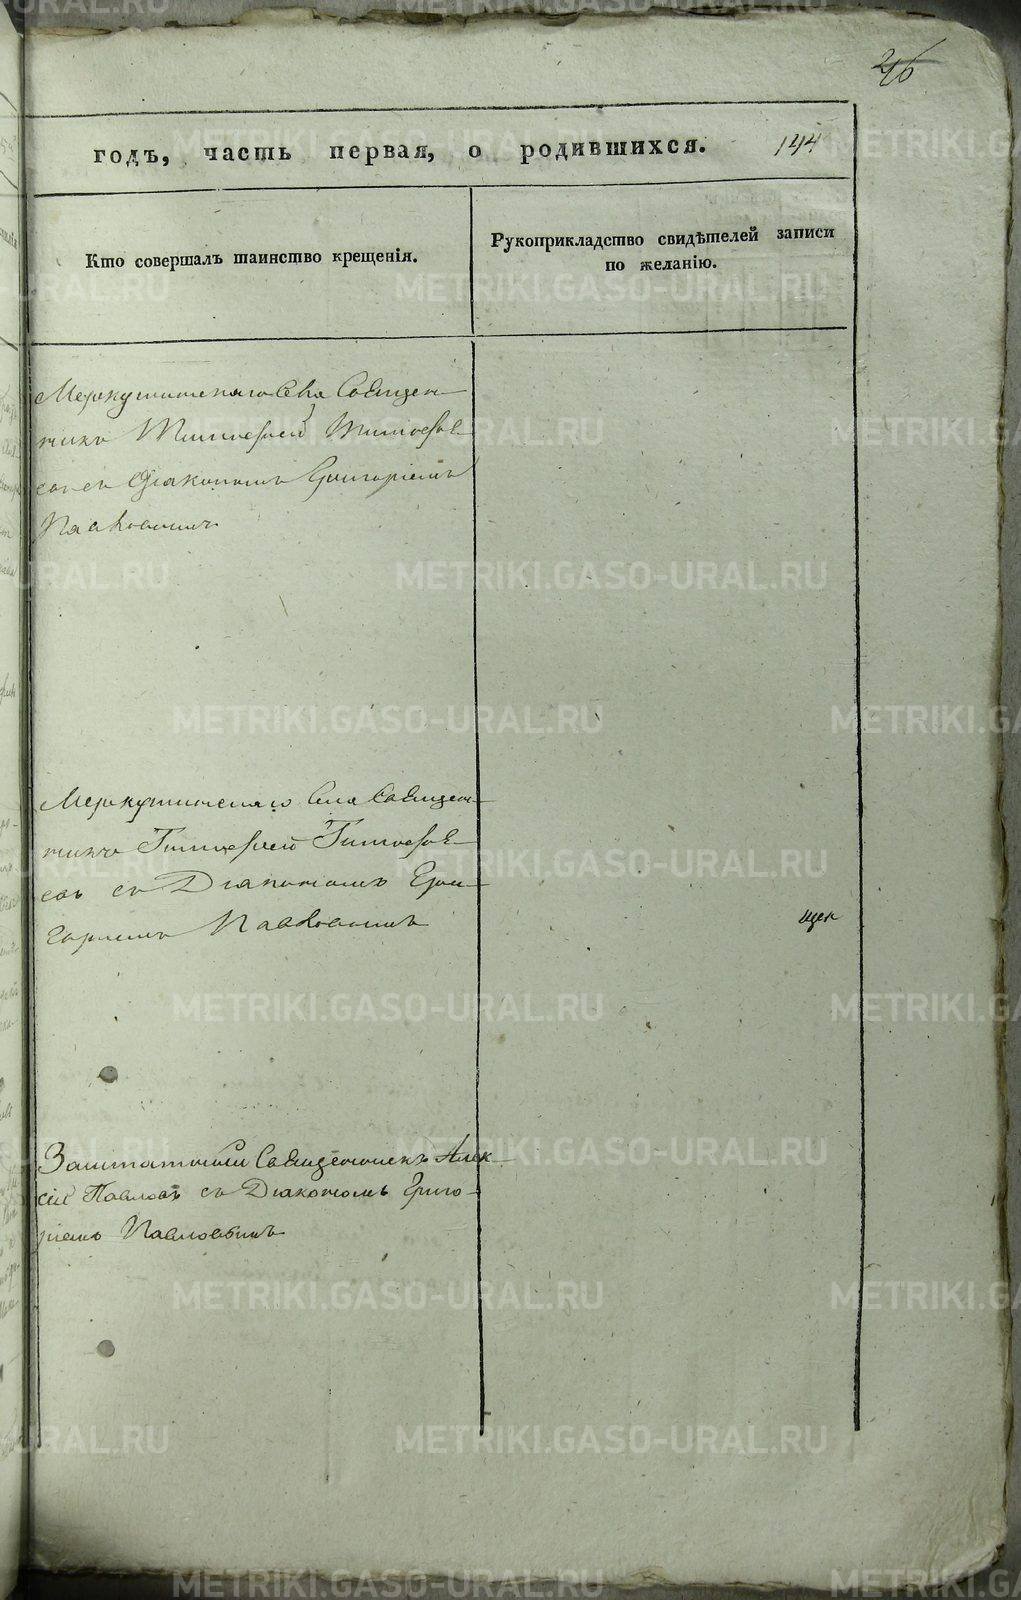 46
годъ, часть первая, о родившихся. 144
Кто совершалъ таинство крещенія.
Рукоприкладство свидѣтелей записи
по желанію.
Меркушинскаго Села Священ-
никъ Тимоѳей Тимоѳѣе-
въ съ Діакономъ Григоріемъ
Павловымъ
Меркушинскаго Села Священ-
никъ Тимоѳей Тимоѳѣе-
въ съ Діакономъ Гри-
горіемъ Павловымъ
щен
Заштатный Священникъ Алек-
сій Павловъ съ Діакономъ Григо-
ріемъ Павловымъ
METRIKI.GASO-URAL.RU